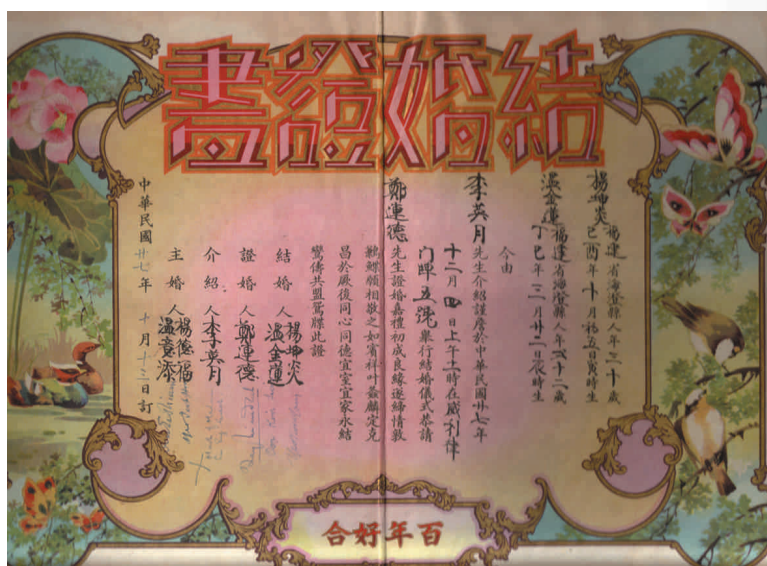 結婚證書
楊坤炎 福建省海澄縣人年三十歲
己酉年十月初五日寅時生
溫金蓮 福建省海澄縣人年二十二歲
丁巳年三月廿二日辰時生
今由
李英月先生介紹謹詹於中華民國廿七年
十二月四日上午十時在咸利律
門牌五號舉行結婚儀式恭請
鄭連德先生證婚嘉禮初成良緣遂締情敦
鶼鰈願相敬之如賓祥叶螽麟定克
昌於厥後同心同德宜室宜家永結
鸞儔共盟鴛牒此證
結婚人 楊坤炎
溫金蓮
證婚人 鄭連德
介紹人 李英月
主婚人 楊德福
溫
中華民國廿七年十月十二日訂
百年好合